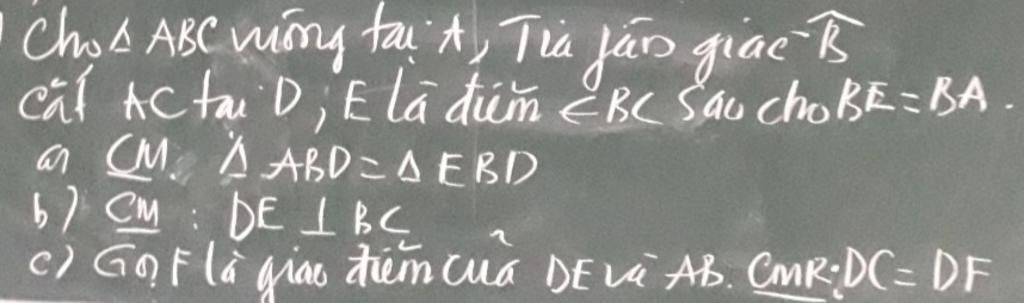 Cho Δ ABC vuông tại A, Tia phân giác B̂
cắt AC tại D, E là điểm ∈ BC sao cho BE = BA.
a) CM. Δ ABD = Δ EBD
b) CM : DE ⊥ BC
c) Gọi F là giao điểm của DE và AB. CMR: DC = DF